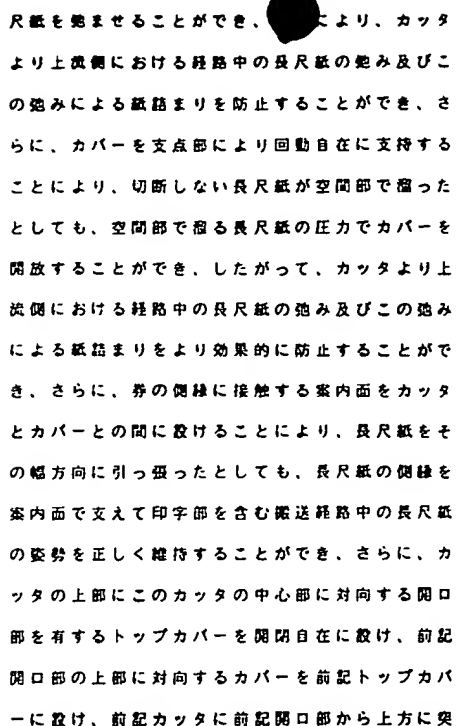 尺紙を弛ませることができ、により、カッタ
より上流側における経路中の長尺紙の弛み及びこ
の弛みによる紙詰まりを防止することができ、さ
らに、カバーを支点部により回動自在に支持する
ことにより、切断しない長尺紙が空間部で溜った
としても、空間部で溜る長尺紙の圧力でカバーを
開放することができ、したがって、カッタより上
流側における経路中の長尺紙の弛み及びこの弛み
による紙詰まりをより効果的に防止することがで
き、さらに、券の側縁に接触する案内面をカッタ
とカバーとの間に設けることにより、長尺紙をそ
の幅方向に引っ張ったとしても、長尺紙の側縁を
案内面で支えて印字部を含む搬送経路中の長尺紙
の姿勢を正しく維持することができ、さらに、カ
ッタの上部にこのカッタの中心部に対向する開口
部を有するトップカバーを開閉自在に設け、前記
開口部の上部に対向するカバーを前記トップカバ
ーに設け、前記カッタに前記開口部から上方に突